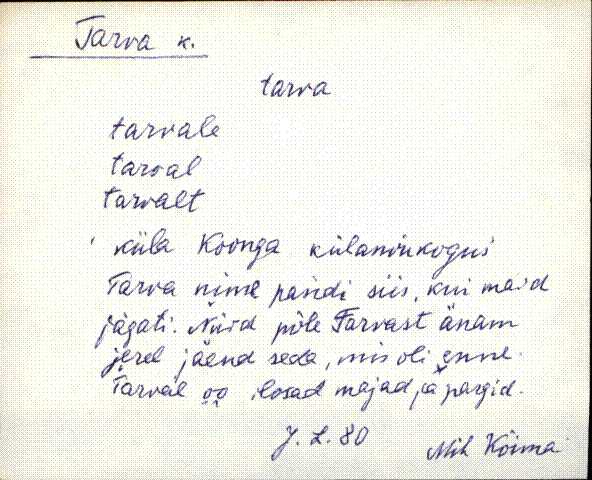 Tarva k.
tarva
tarvale
tarval
tarvalt
' küla Koonga külanõukogus
Tarva nime pandi siis, kui maid
jägati. Nüid põle Tarvast änam
jerel jäend seda, mis oli enne.
Tarval oo ilosad majad ja pargid.
J. L. 80 Mih Kõima